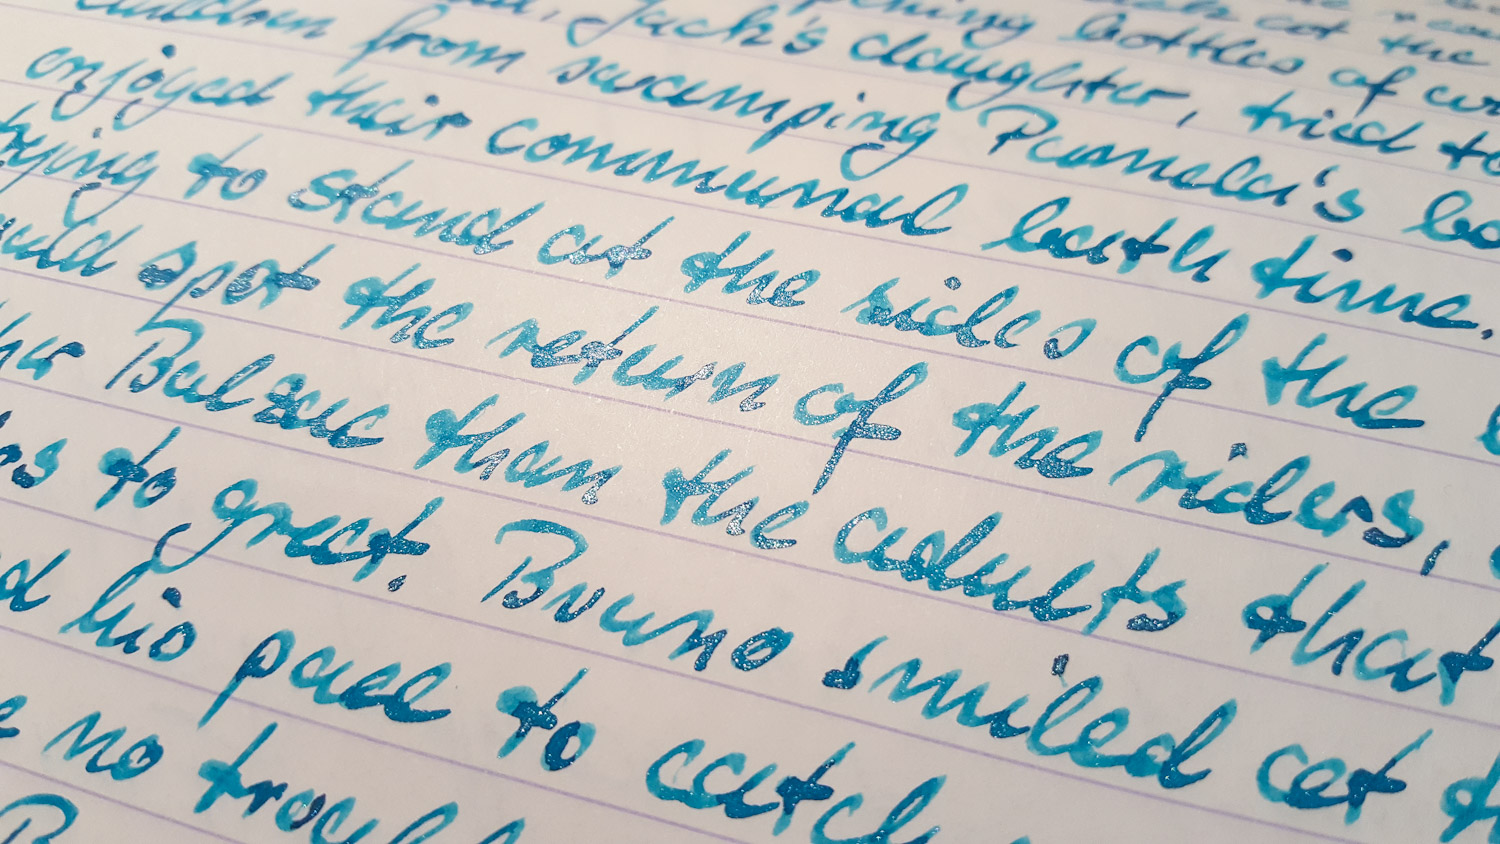 bottles of
Jack's daughter, tried to
children from swamping Pamela's
enjoyed their communal bath time.
trying to stand at the sides of the
could spot the return of the riders,
Balzac than the adults that
to greet. Bruno smiled at
his pace to catch
no